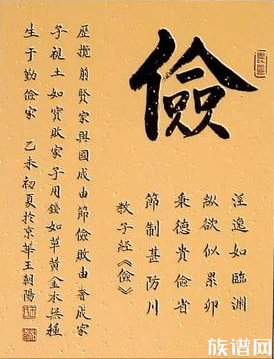 儉
淫逸如臨淵
縱欲似累卵
秉德貴儉省
節制甚防川
教子經《儉》
歷攬前賢家與國成由節儉敗由奢成家
子土如寶敗家子用錢如草黃金本無種
生于勤儉家 乙未初夏於京華王朝陽
族谱网